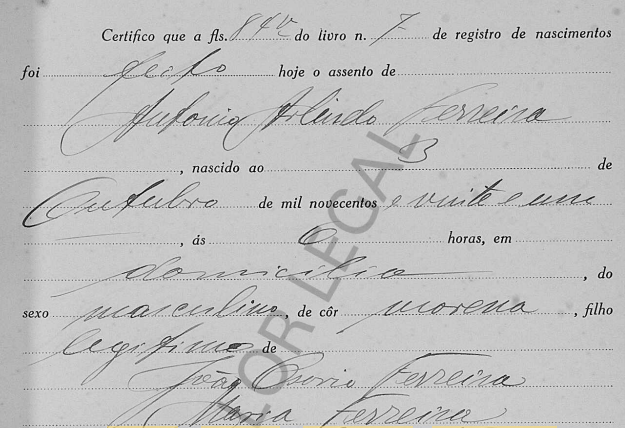 Certifico que a fls. 84v do livro n. 7 de registro de nascimentos
foi feito hoje o assento de
Antonio Arlindo Ferreira
, nascido ao 3 de
Outubro de mil novecentos e vinte e um
, ás 6 horas, em
domicilio , do
sexo masculino, de côr morena , filho
legitimo de
João Ferreira
Maria Ferreira
OR LEGAL